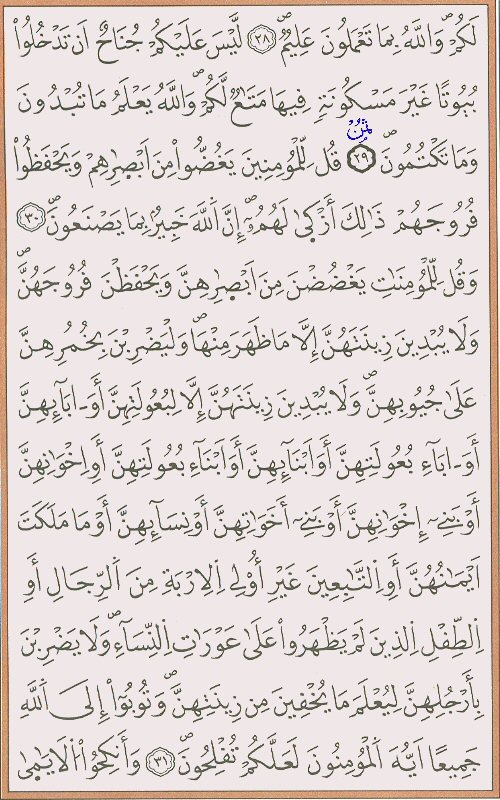 لَكُمْۖ وَاللَّهُ بِمَا تَعْمَلُونَ عَلِيمٌۖ ٢٨ لَّيْسَ عَلَيْكُمْ جُنَاحٌ اَن تَدْخُلُواْ
بُيُوتًا غَيْرَ مَسْكُونَةٖ فِيهَا مَتَٰعٞ لَّكُمْۖ وَاللَّهُ يَعْلَمُ مَا تُبْدُونَ
ثمن
وَمَا تَكْتُمُونَۖ ٢٩ قُل لِّلْمُومِنِينَ يَغُضُّواْ مِنَ اَبْصٰ۪رِهِمْ وَيَحْفَظُواْ
فُرُوجَهُمْ ذَٰلِكَ أَزْك۪ىٰ لَهُمُۥٓۖ إِنَّ اَللَّهَ خَبِيرُۢ بِمَا يَصْنَعُونَۖ ٣٠
وَقُل لِّلْمُومِنَٰتِ يَغْضُضْنَ مِنَ اَبْصٰ۪رِهِنَّ وَيَحْفَظْنَ فُرُوجَهُنَّۖ
وَلَا يُبْدِينَ زِينَتَهُنَّ إِلَّا مَا ظَهَرَ مِنْهَاۖ وَلْيَضْرِبْنَ بِخُمُرِهِنَّ
عَلَىٰ جُيُوبِهِنَّۖ وَلَا يُبْدِينَ زِينَتَهُنَّ إِلَّا لِبُعُولَتِهِنَّ أَوَ ـابَآئِهِنَّ
أَوَ ـابَآءِ بُعُولَتِهِنَّ أَوَ اَبْنَآئِهِنَّ أَوَ اَبْنَآءِ بُعُولَتِهِنَّ أَوِ اِخْوَٰنِهِنَّ
أَوْ بَنِےٓ إِخْوَٰنِهِنَّ أَوْ بَنِےٓ أَخَوَٰتِهِنَّ أَوْ نِسَآئِهِنَّ أَوْ مَا مَلَكَتَ
اَيْمَٰنُهُنَّ أَوِ اِلتَّٰبِعِينَ غَيْرِ أُوْلِے اِلِارْبَةِ مِنَ اَلرِّجَالِ أَوِ
اِلطِّفْلِ اِلذِينَ لَمْ يَظْهَرُواْ عَلَىٰ عَوْرَٰتِ اِلنِّسَآءِۖ وَلَا يَضْرِبْنَ
بِأَرْجُلِهِنَّ لِيُعْلَمَ مَا يُخْفِينَ مِن زِينَتِهِنَّۖ وَتُوبُوٓاْ إِلَى اَللَّهِ
جَمِيعًا اَيُّهَ اَلْمُومِنُونَ لَعَلَّكُمْ تُفْلِحُونَۖ ٣١ وَأَنكِحُواْ الْأَيَٰم۪ىٰ